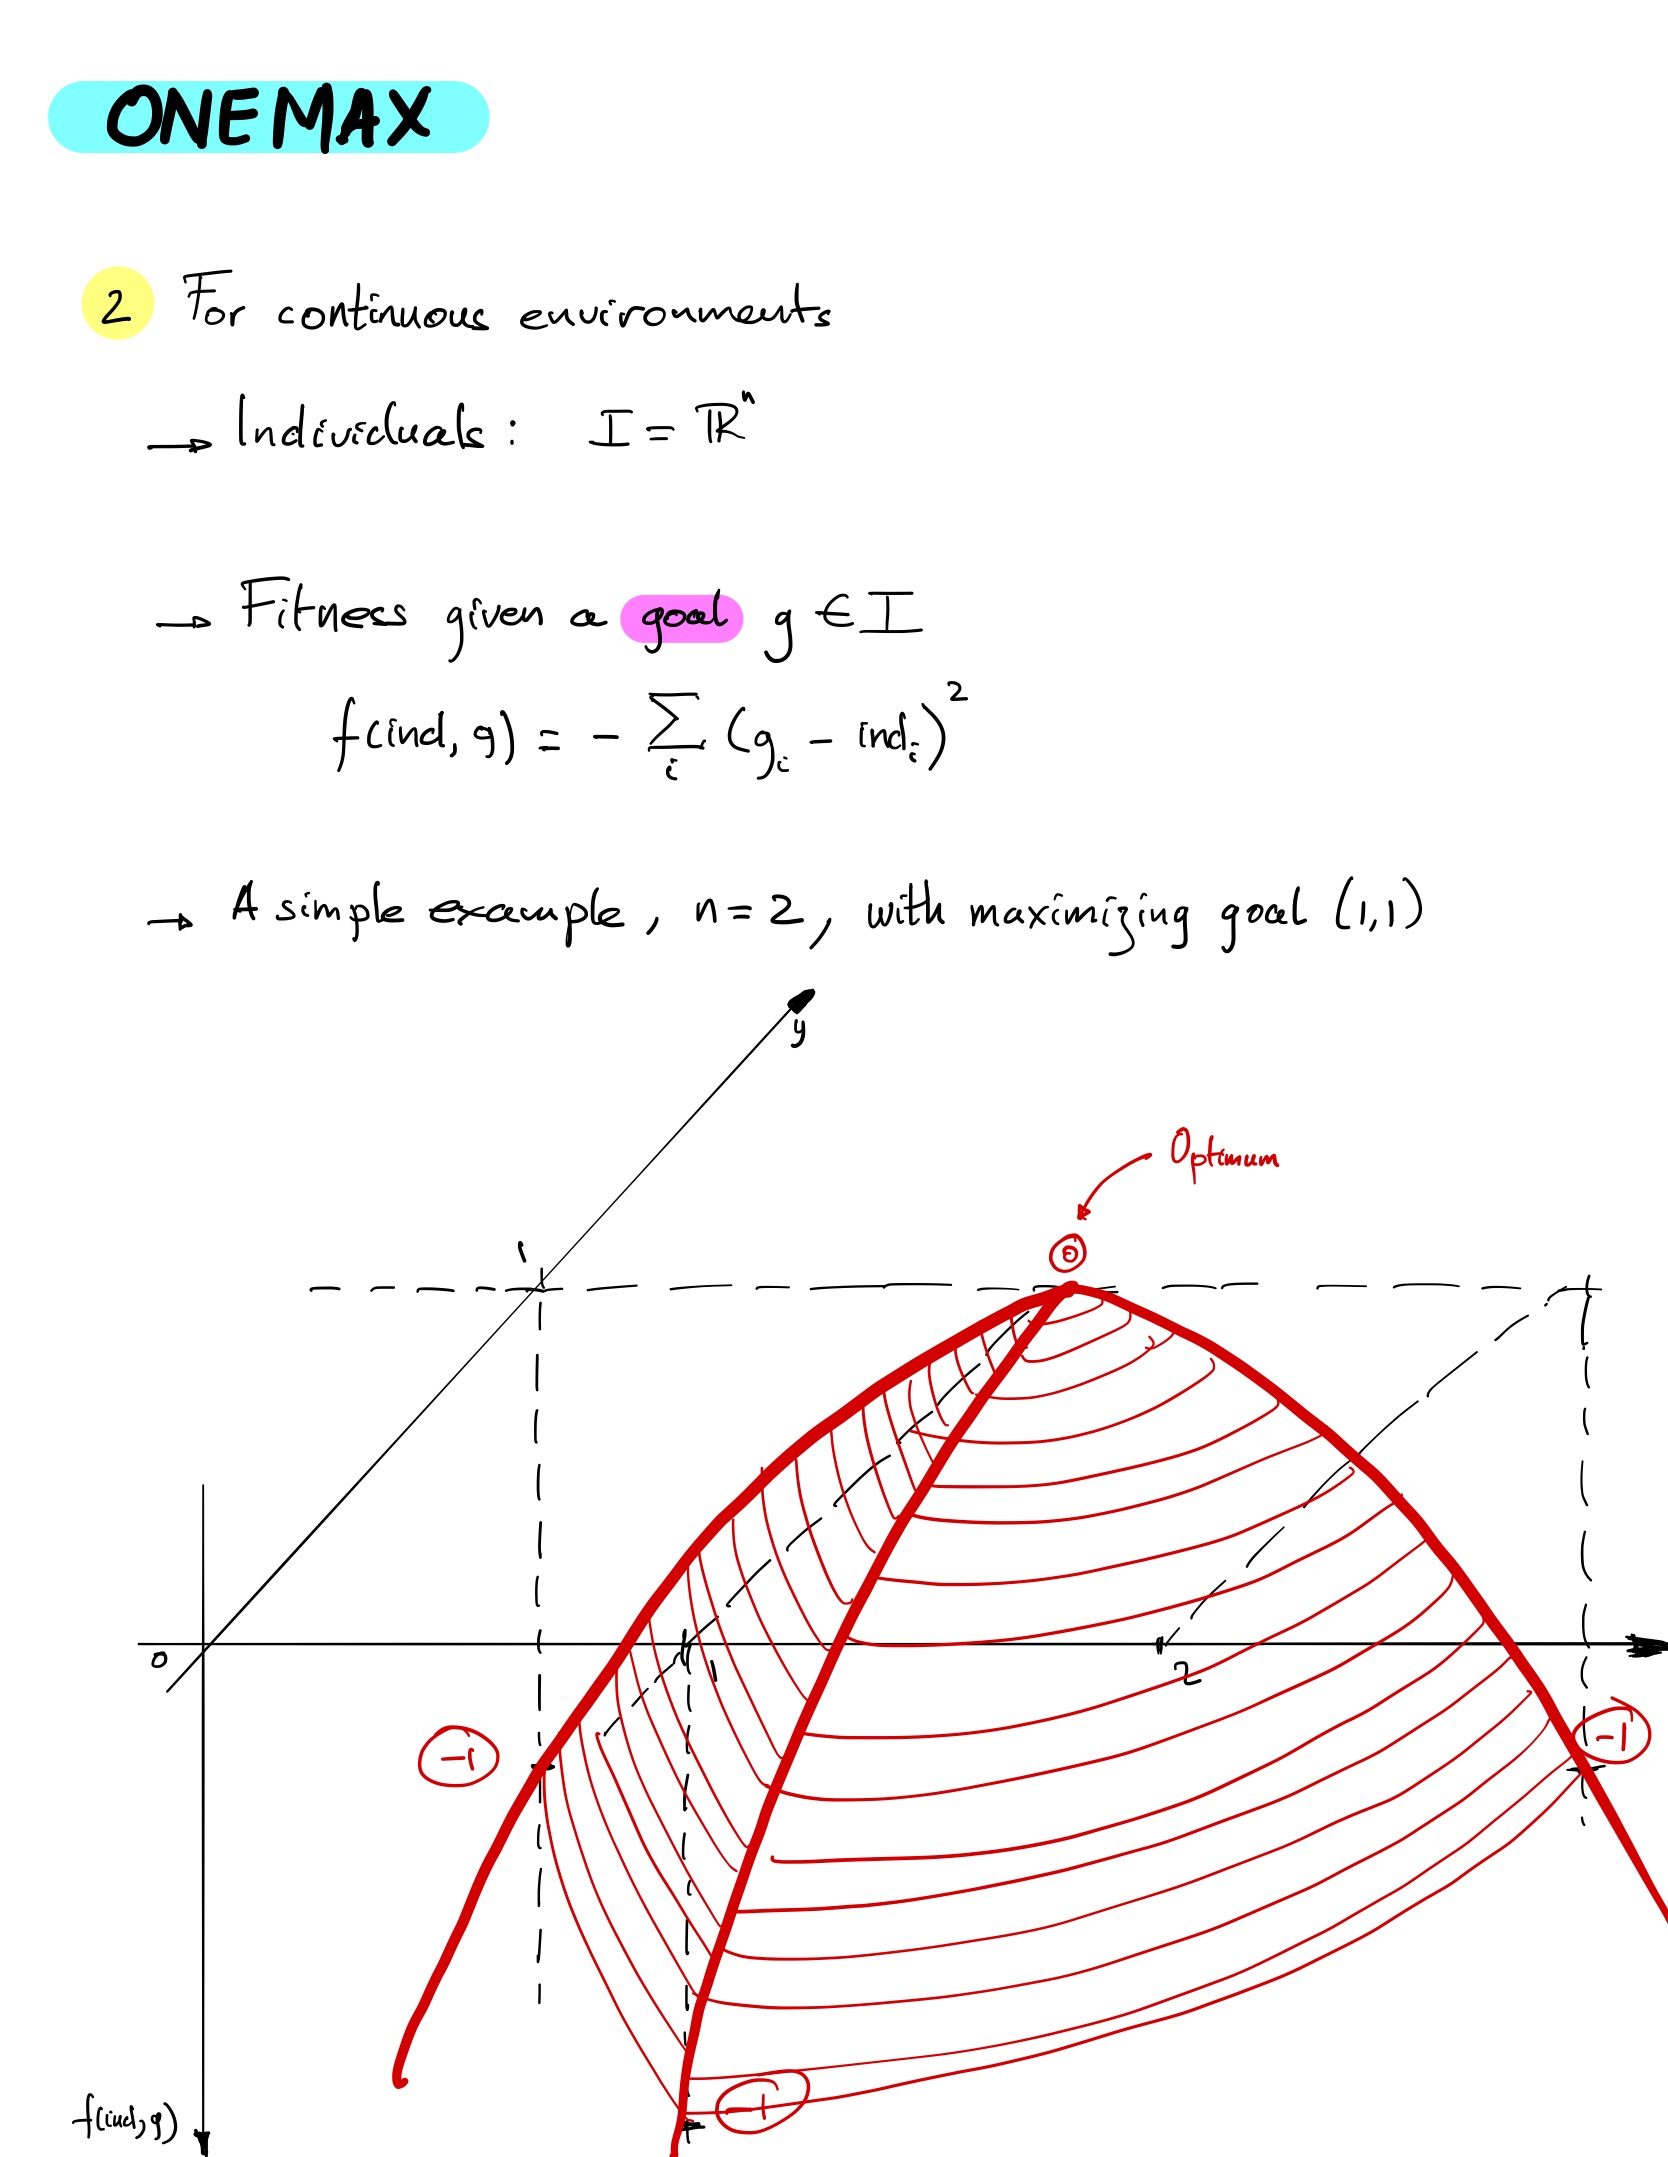 ONEMAX
2 For continuous environments
→ Individuals: I = ℝⁿ
→ Fitness given a goal g ∈ I
f(ind, g) = - Σ_i (g_i - ind_i)²
→ A simple example, n=2, with maximizing goal (1,1)
y
Optimum
1
0
0
1
2
-1
-1
-1
f(ind,g)